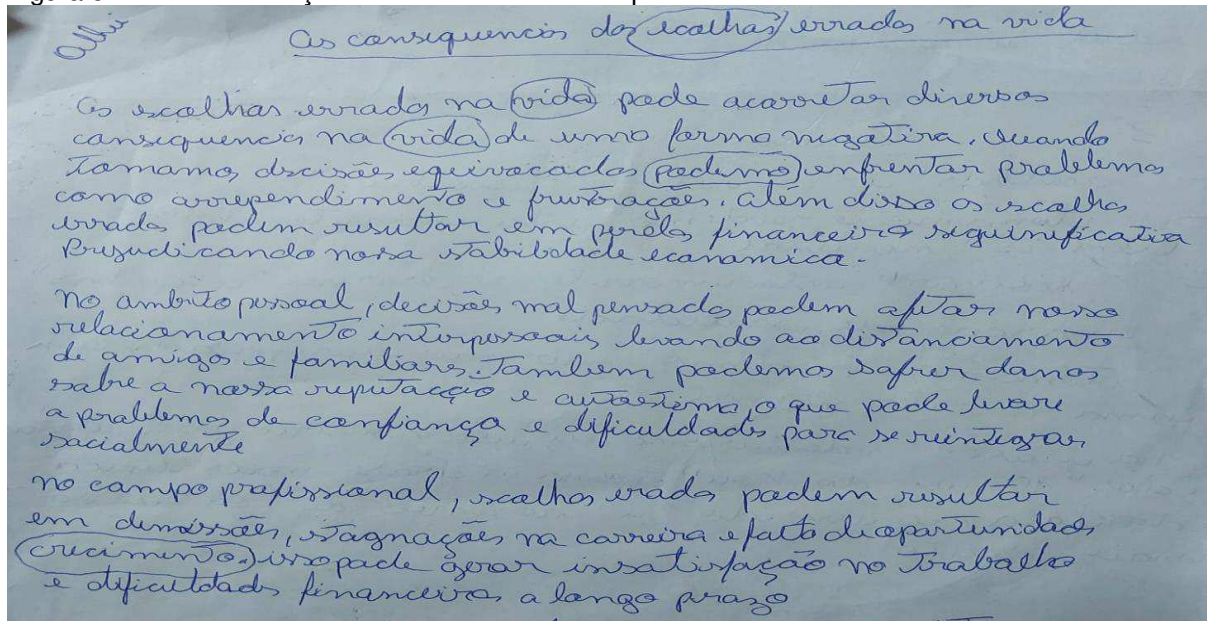 As consequencias das escolhas errados na vida
As escalhas errados na vida pode acarretar diversos
consequencia na vida de uma forma negativa. Quando
tomamos decisões equivocados pademos enfrentar problemas
como arrependimento e frustrações. além disso os escolhos
errados podem resultar em perdas financeira seguinificativa
Prejudicando nossa stabilidade econamica.
No ambito pessoal, decisões mal pensados podem afetar nosso
relacionamento interpessoais levando ao distanciamento
de amigos e familiares. Tambem podemos sofrer danos
sobre a nossa reputacção e autoestima, o que pode levare
a problemas de confiança e dificuldades para se reintegrar
socialmente
no campo profissional, scolhas erados podem resultar
em demissões, stagnações na carreira e falta de opartunidades
crecimento. isso pode gerar insatisfação no trabalho
e dificuldades financeiras a longo prazo